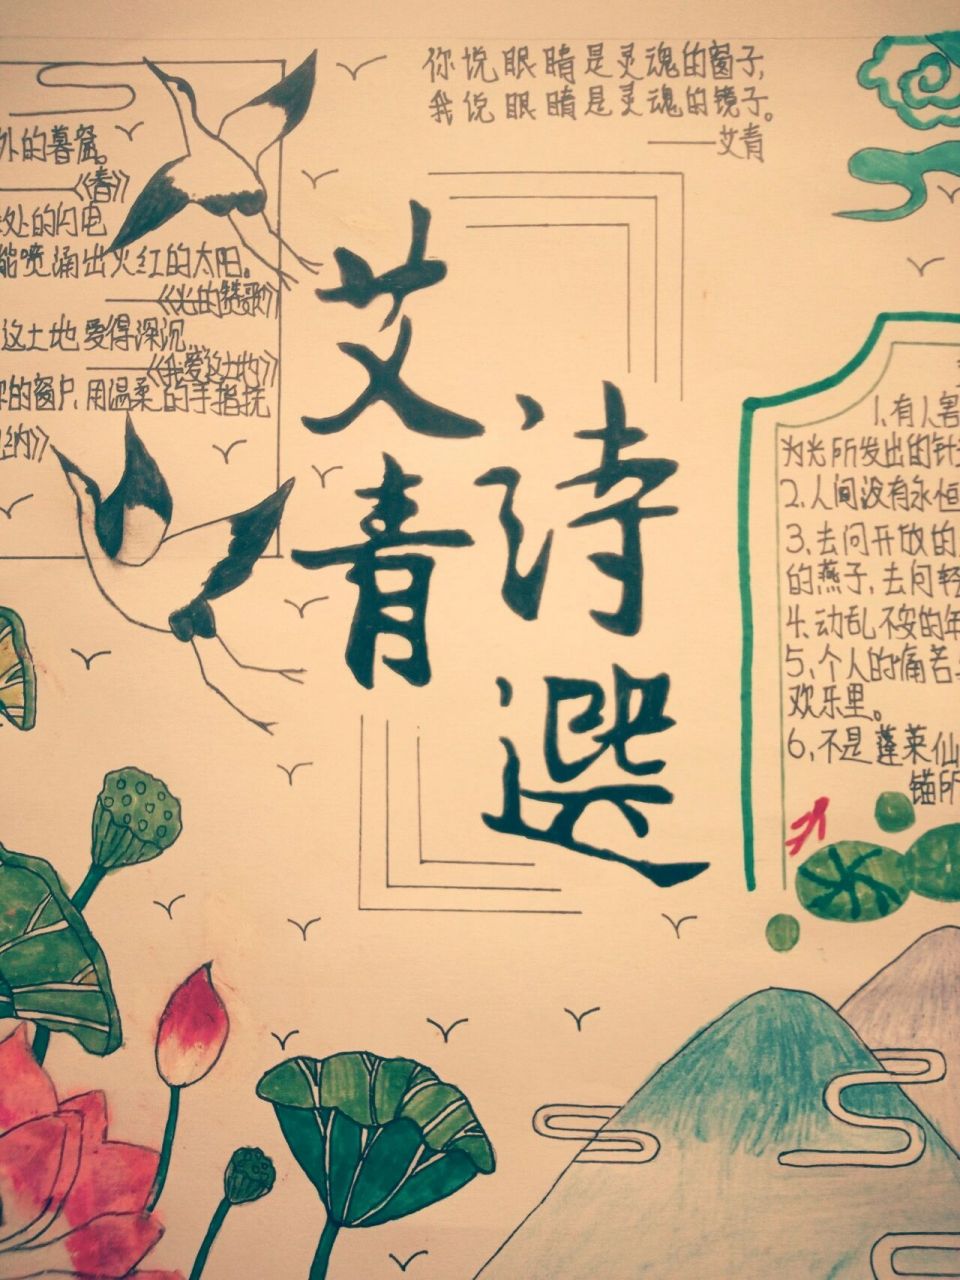 你说眼睛是灵魂的窗子,
我说眼睛是灵魂的镜子。
——艾青
外的暮窟。
——《春》
处的闪电
能喷涌出火红的太阳。
——《光的赞歌》
这土地爱得深沉
——《我爱这土地》
的窗户,用温柔的手指抚
纳》
艾青
诗選
1、有人害
为光所发出的针
2、人间没有永恒
3、去问开放的
的燕子,去问轻
4、动乱不安的年
5、个人的痛苦
欢乐里。
6、不是蓬莱仙
锚所